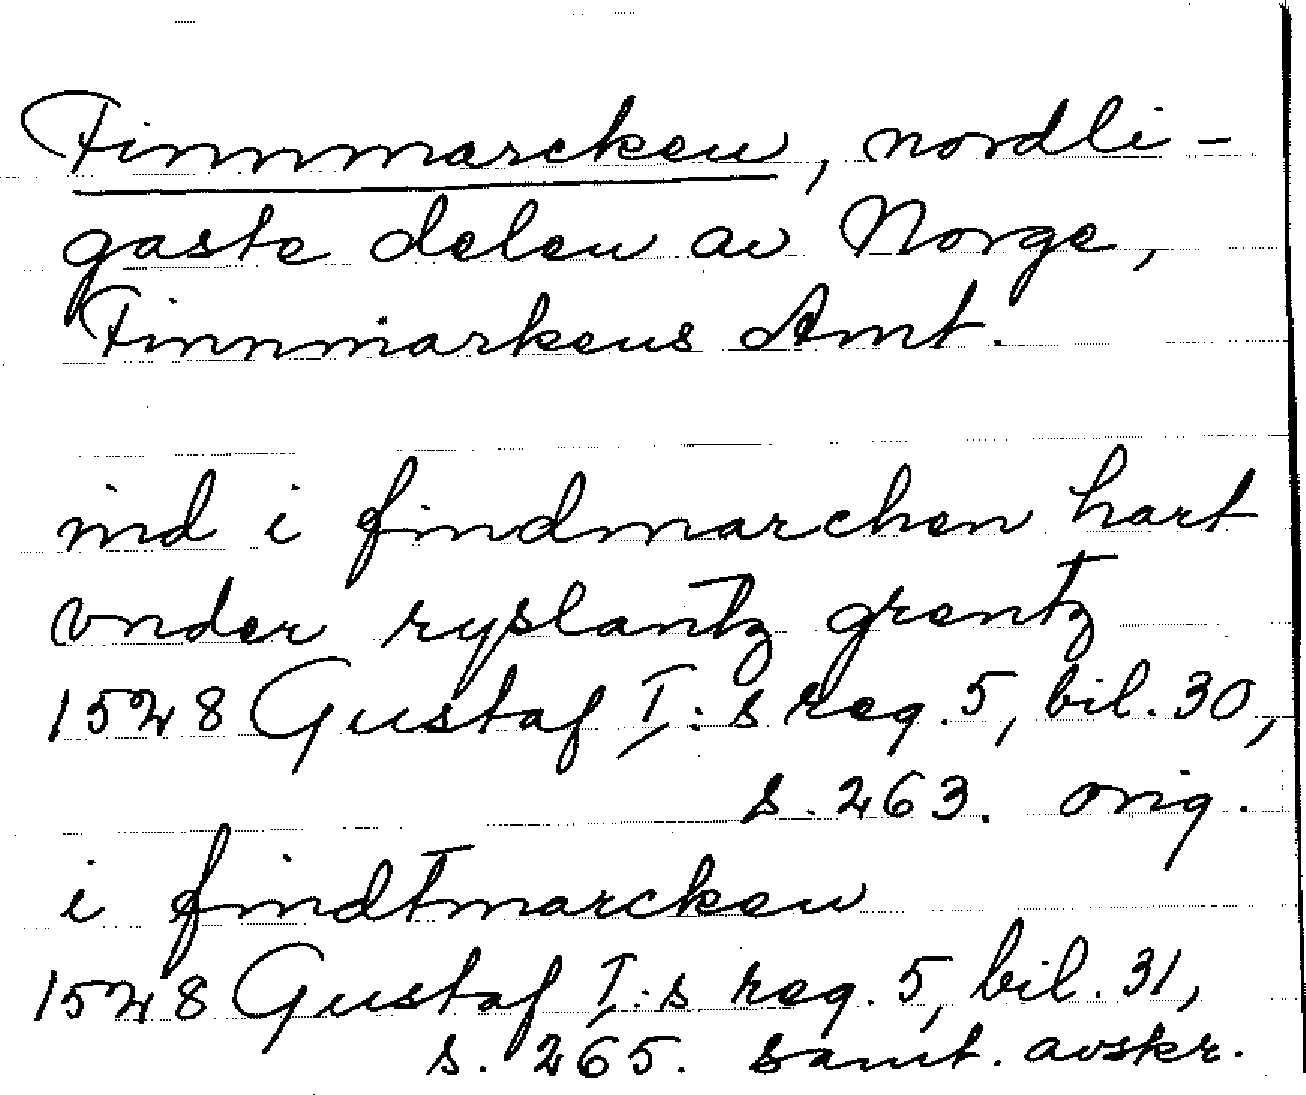 Finnmarcken, nordli-
gaste delen av Norge,
Finnmarkens Amt.
ind i findmarchen hart
vnder ryslantz grentz
1528 Gustaf I:s reg. 5, bil. 30,
s. 263. orig.
i findtmarcken
1528 Gustaf I:s reg. 5, bil. 31,
s. 265. samt. avskr.